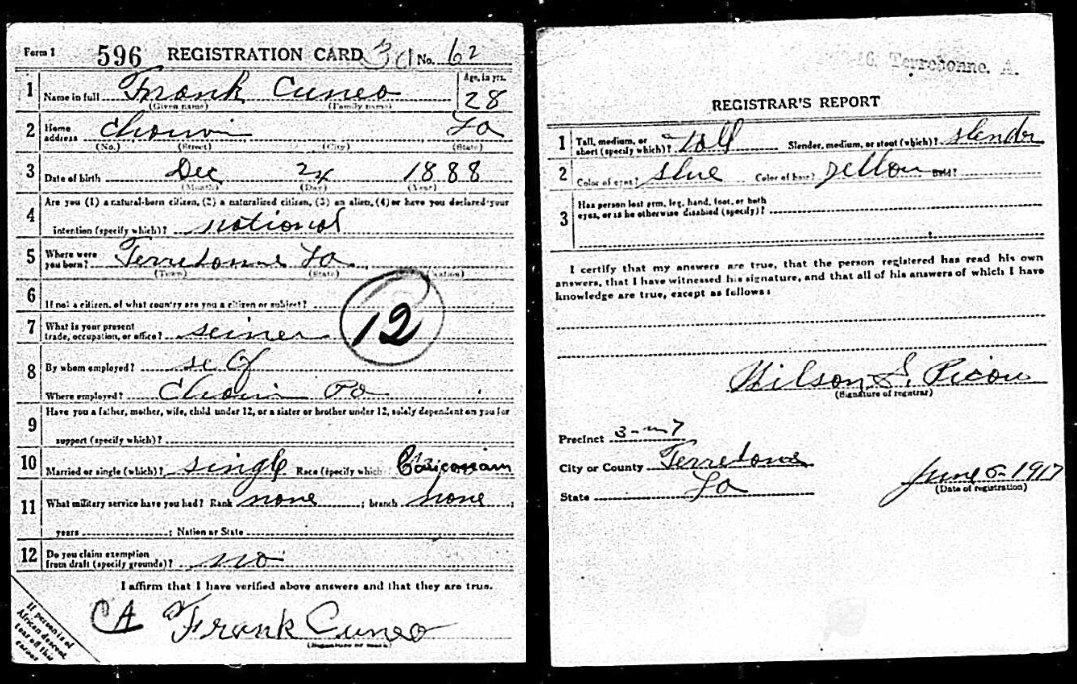 Form 1 596 REGISTRATION CARD No. 62
1 Name in full Frank Cuneo Age, in yrs. 28
(Given name) (Family name)
2 Home address Chauvin La
(No.) (Street) (City) (State)
3 Date of birth Dec 24 1888
(Month) (Day) (Year)
4 Are you (1) a natural-born citizen, (2) a naturalized citizen, (3) an alien, (4) or have you declared your
intention (specify which)? national
5 Where were you born? Terrebonne La
(Town) (State) (Nation)
6 If not a citizen, of what country are you a citizen or subject?
12
7 What is your present trade, occupation, or office? seiner
8 By whom employed? self
Where employed? Chauvin La
9 Have you a father, mother, wife, child under 12, or a sister or brother under 12, solely dependent on you for
support (specify which)?
10 Married or single (which)? single Race (specify which)
11 What military service have you had? Rank none ; branch none ;
years ; Nation or State
12 Do you claim exemption from draft (specify grounds)? no
I affirm that I have verified above answers and that they are true.
Frank Cuneo
(Signature or mark)
If person is of African descent, tear off this corner
Terrebonne. A.
REGISTRAR'S REPORT
1 Tall, medium, or short (specify which)? Tall Slender, medium, or stout (which)? slender
2 Color of eyes? blue Color of hair? yellow Bald?
3 Has person lost arm, leg, hand, foot, or both eyes, or is he otherwise disabled (specify)?
I certify that my answers are true, that the person registered has read his own
answers, that I have witnessed his signature, and that all of his answers of which I have
knowledge are true, except as follows:
Wilson S. Picou
(Signature of registrar)
Precinct 3-m 7
City or County Terrebonne
State La
June 5-1917
(Date of registration)